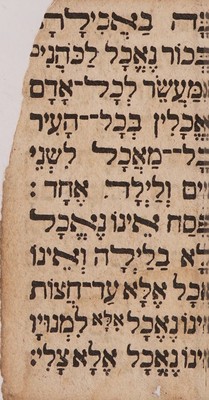 נָּה בַּאֲכִילָה
בְּכוֹר נֶאֱכָל לַכֹּהֲנִים
מַּעֲשֵׂר לְכָל־אָדָם
אֱכָלִין בְּכָל־הָעִיר
כָל־מַאֲכָל לִשְׁנֵי
ים וְלַיְלָה אֶחָד:
פֶּסַח אֵינוֹ נֶאֱכָל
לָּא בַלַּיְלָה וְאֵינוֹ
אֱכָל אֶלָּא עַד־חֲצוֹת
אֵינוֹ נֶאֱכָל אֶלָּא לִמְנוּיָיו
אֵינוֹ נֶאֱכָל אֶלָּא צָלִי: